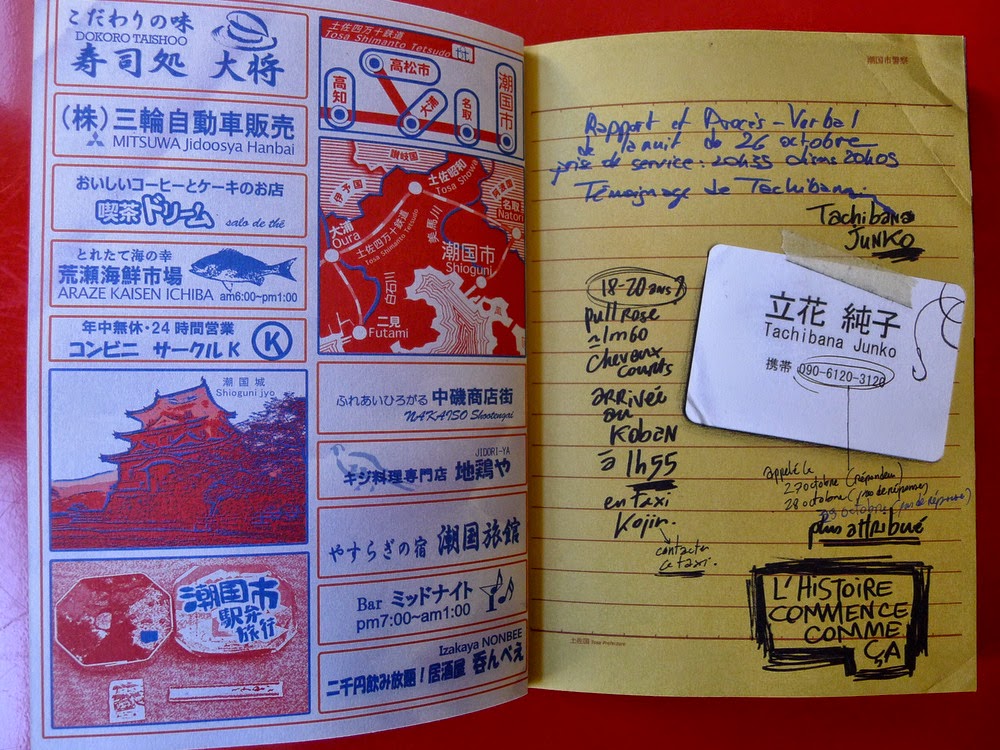 こだわりの味
DOKORO TAISHOO
寿司処 大将
(株)三輪自動車販売
MITSUWA Jidoosya Hanbai
おいしいコーヒーとケーキのお店
喫茶ドリーム salo de thé
とれたて海の幸
荒瀬海鮮市場
ARAZE KAISEN ICHIBA am6:00~pm1:00
年中無休・24時間営業
コンビニ サークルK K
潮国城
Shioguni jyo
潮国市
駅弁
旅行
土佐四万十鉄道
Tosa Shimanto Tetsudo
高知
高松市
大浦
名取
潮国市
讃岐国
伊予国
土佐昭和
Tosa Showa
名取
Natori
大浦
Oura
土佐四万十鉄道
Tosa Shimanto Tetsudo
美馬川
潮国市
Shioguni
二見
Futami
ふれあいひろがる 中磯商店街
NAKAISO Shootengai
JIDORI-YA
キジ料理専門店 地鶏や
やすらぎの宿 潮国旅館
Bar ミッドナイト
pm7:00~am1:00
Izakaya NONBEE
二千円飲み放題!居酒屋 呑んべえ
潮国市警察
Rapport et Procès-Verbal
de la nuit du 26 octobre
prise de service: 20h55
Témoignage de Tachibana
Tachibana
JUNKO
18-20 ans
pull rose
~1m60
cheveux
courts
arrivée
au
KOBAN
à 1h55
en taxi
Kojin.
contacter
ce taxi.
立花 純子
Tachibana Junko
携帯 090-6120-3120
appelé le
27 octobre (répondeur)
28 octobre (pas de réponse)
29 octobre (pas de réponse)
plus attribué
L'HISTOIRE
COMMENCE
COMME
ÇA
土佐国 Tosa Prefecture